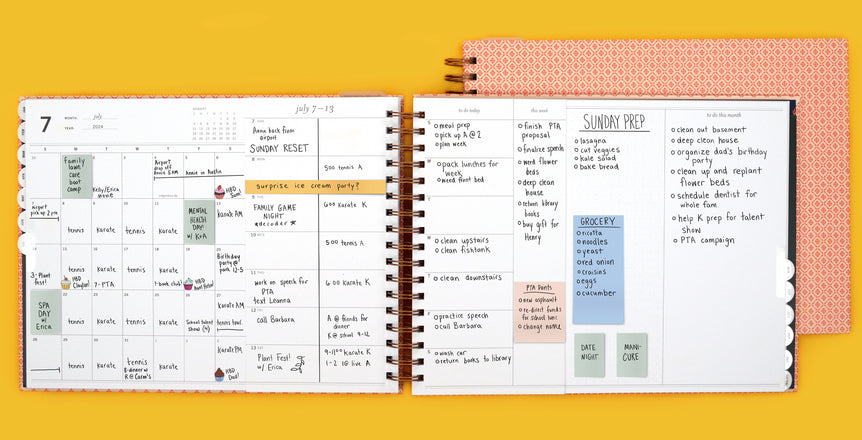 7
MONTH: july
YEAR: 2024
AUGUST
S M T W T F S
family
lawn
care
boot
camp
Kelly/Erica
Airport
drop off
Annie in Austin
HBD
Sam!
Airport
pick up 2 pm
tennis
karate
tennis
karate
MENTAL
HEALTH
DAY!
w/ K+A
karate AM
3-Plant
fest!
tennis
HBD
Clayton!
karate
7-PTA
tennis
karate
1-book club!
HBD
Birthday
party @
park
12-5
SPA
DAY
w/
Erica
tennis
karate
tennis
karate
School talent
show (4)
karate AM
tennis tourn.
tennis
karate
tennis
6-dinner w/
R @ Carm's
karate
karate PM
HBD
Dad!
july 7–13
Anna back from
airport
SUNDAY RESET
5:00 tennis A
surprise ice cream party?
FAMILY GAME
NIGHT
*decoder*
6:00 karate K
5:00 tennis A
work on speech for
PTA
text Leanna
6:00 karate K
call Barbara
A @ friends for
dinner
K @ school 9-12
Plant Fest!
w/ Erica
9-11:00 karate K
1-2 IG live A
to do today
meal prep
pick up A @ 2
plan week
pack lunches for
week
weed front bed
clean upstairs
clean fishtank
clean downstairs
practice speech
call Barbara
wash car
return books to library
this week
finish PTA
proposal
finalize speech
weed flower
beds
deep clean
house
return library
books
buy gift for
Henry
PTA Points
new asphalt
re-direct funds
for school lunc
change name
SUNDAY PREP
lasagna
cut veggies
kale salad
bake bread
GROCERY
ricotta
noodles
yeast
red onion
craisins
eggs
cucumber
DATE
NIGHT
MANI-
CURE
to do this month
clean out basement
deep clean house
organize dad's birthday
party
clean up and replant
flower beds
schedule dentist for
whole fam
help K prep for talent
show
PTA campaign